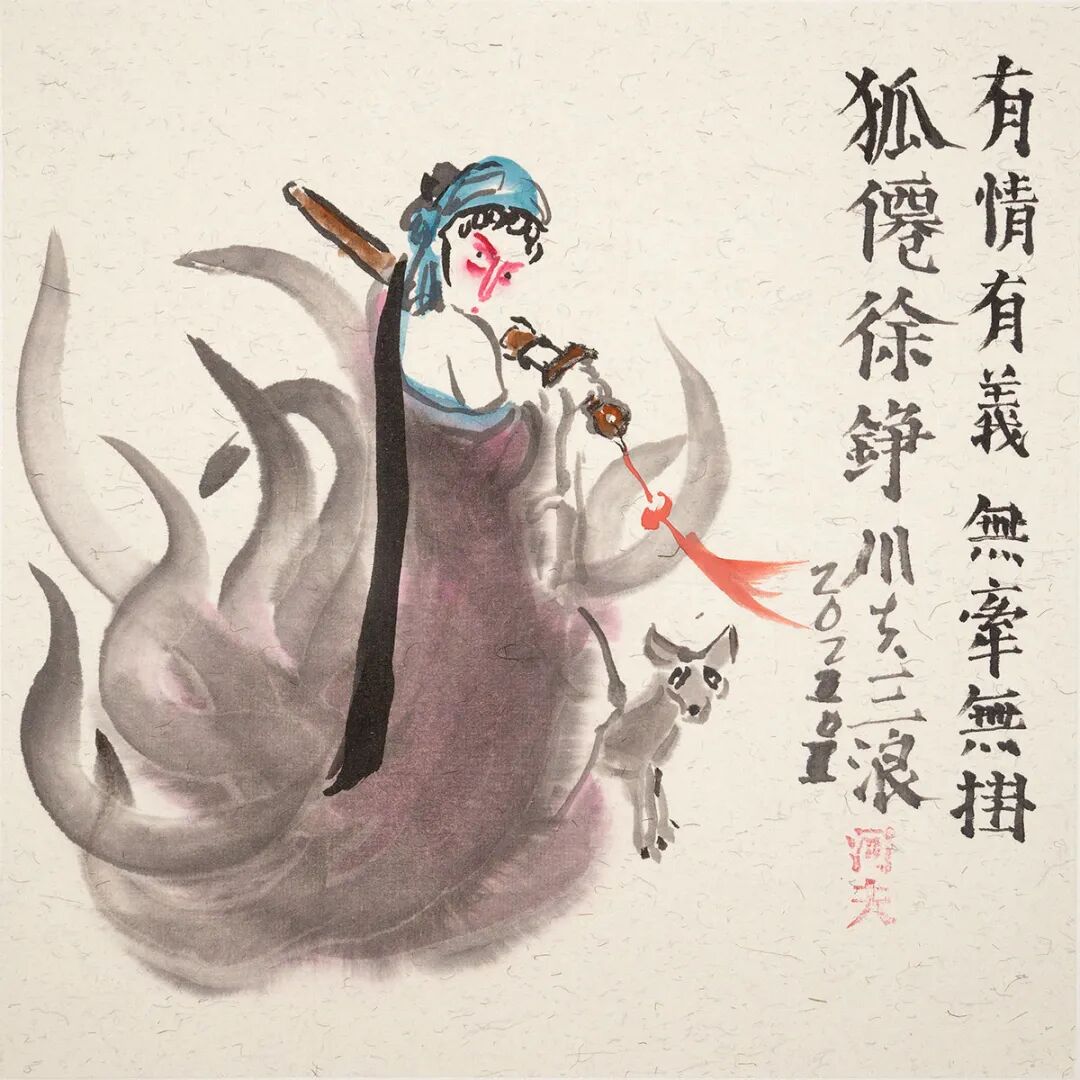 有情有義 無牽無掛
狐僊徐錚 川夫三浪
河夫